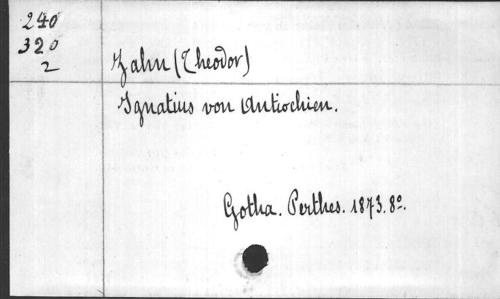 240
320
2
Zahn (Theodor)
Ignatius von Antiochien.
Gotha. Perthes. 1873. 8º.